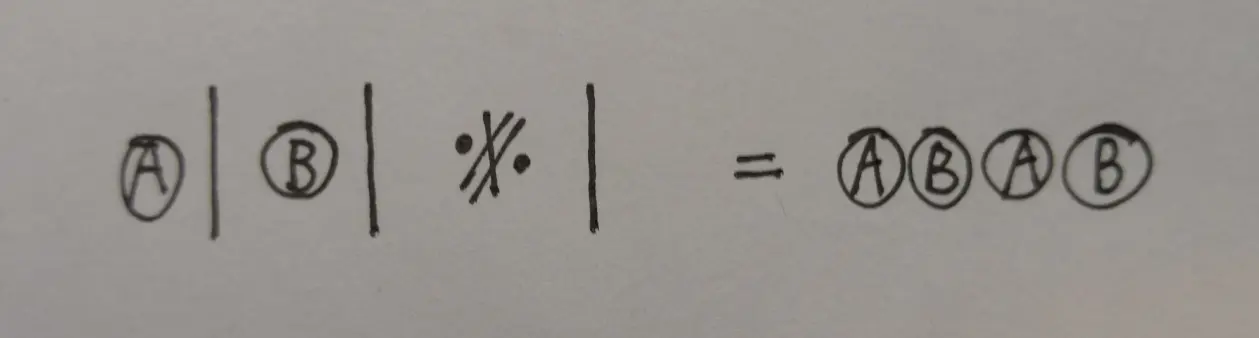 Ⓐ | Ⓑ | 𝄏 | = ⒶⒷⒶⒷ